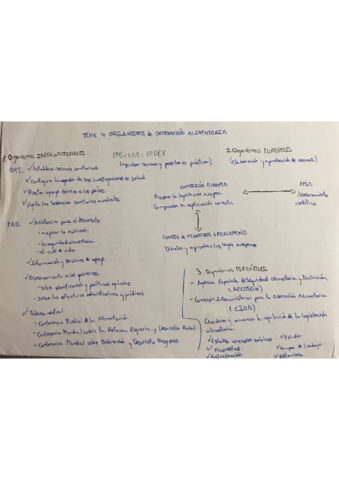 TEMA 4. ORGANISMOS de ORDENACIÓN ALIMENTARIA
1. Organismos INTERNACIONALES
OMS:
✓ Establece normas sanitarias
✓ Configura la agenda de las investigaciones en salud
✓ Presta apoyo técnico a los países
✓ Vigila las tendencias sanitarias mundiales
FAO:
✓ Asistencia para el desarrollo
- mejorar la nutrición
- la seguridad alimentaria
- el nivel de vida
✓ Información y servicios de apoyo
✓ Asesoramiento a los gobiernos
- sobre planificación y políticas agrícolas
- sobre las estructuras administrativas y jurídicas
✓ Tribuna neutral
- Conferencia Mundial de la Alimentación
- Conferencia Mundial sobre la Reforma Agraria y Desarrollo Rural
- Conferencia Mundial sobre Ordenación y Desarrollo Pesquero
OMS + FAO: CODEX
(impulsar normas y ponerlas en práctica)
2. Organismos EUROPEOS
(Elaboración y aprobación de normas)
COMISIÓN EUROPEA
Propone la legislación europea
Comprueba su aplicación correcta
EFSA
(asesoramiento
científico)
CONSEJO DE MINISTROS & PARLAMENTO
Debaten y aprueban las leyes europeas
3. Organismos ESPAÑOLES
- Agencia Española de Seguridad Alimentaria y Nutrición
(AECOSAN)
- Comisión Interministerial para la Ordenación Alimentaria
(CIOA)
Coordina y armoniza la legislación
alimentaria
✓ Estudio
✓ Propuestas
✓ Grupos de trabajo